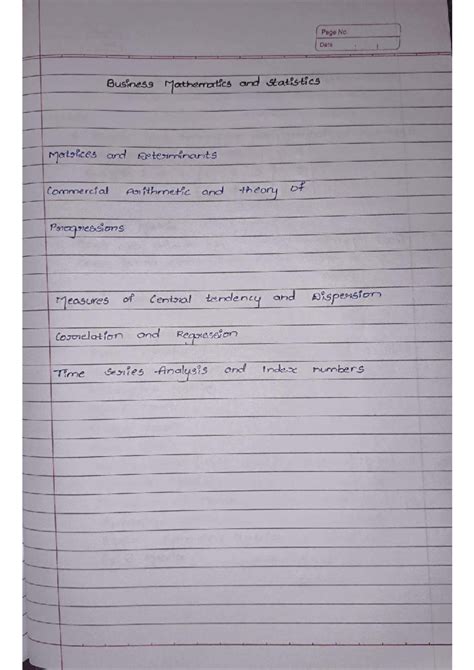 Page No.
Date
Business Mathematics and Statistics
Matrices and Determinants
Commercial Arithmetic and theory of
Progressions
Measures of Central tendency and Dispersion
Correlation and Regression
Time Series Analysis and Index numbers